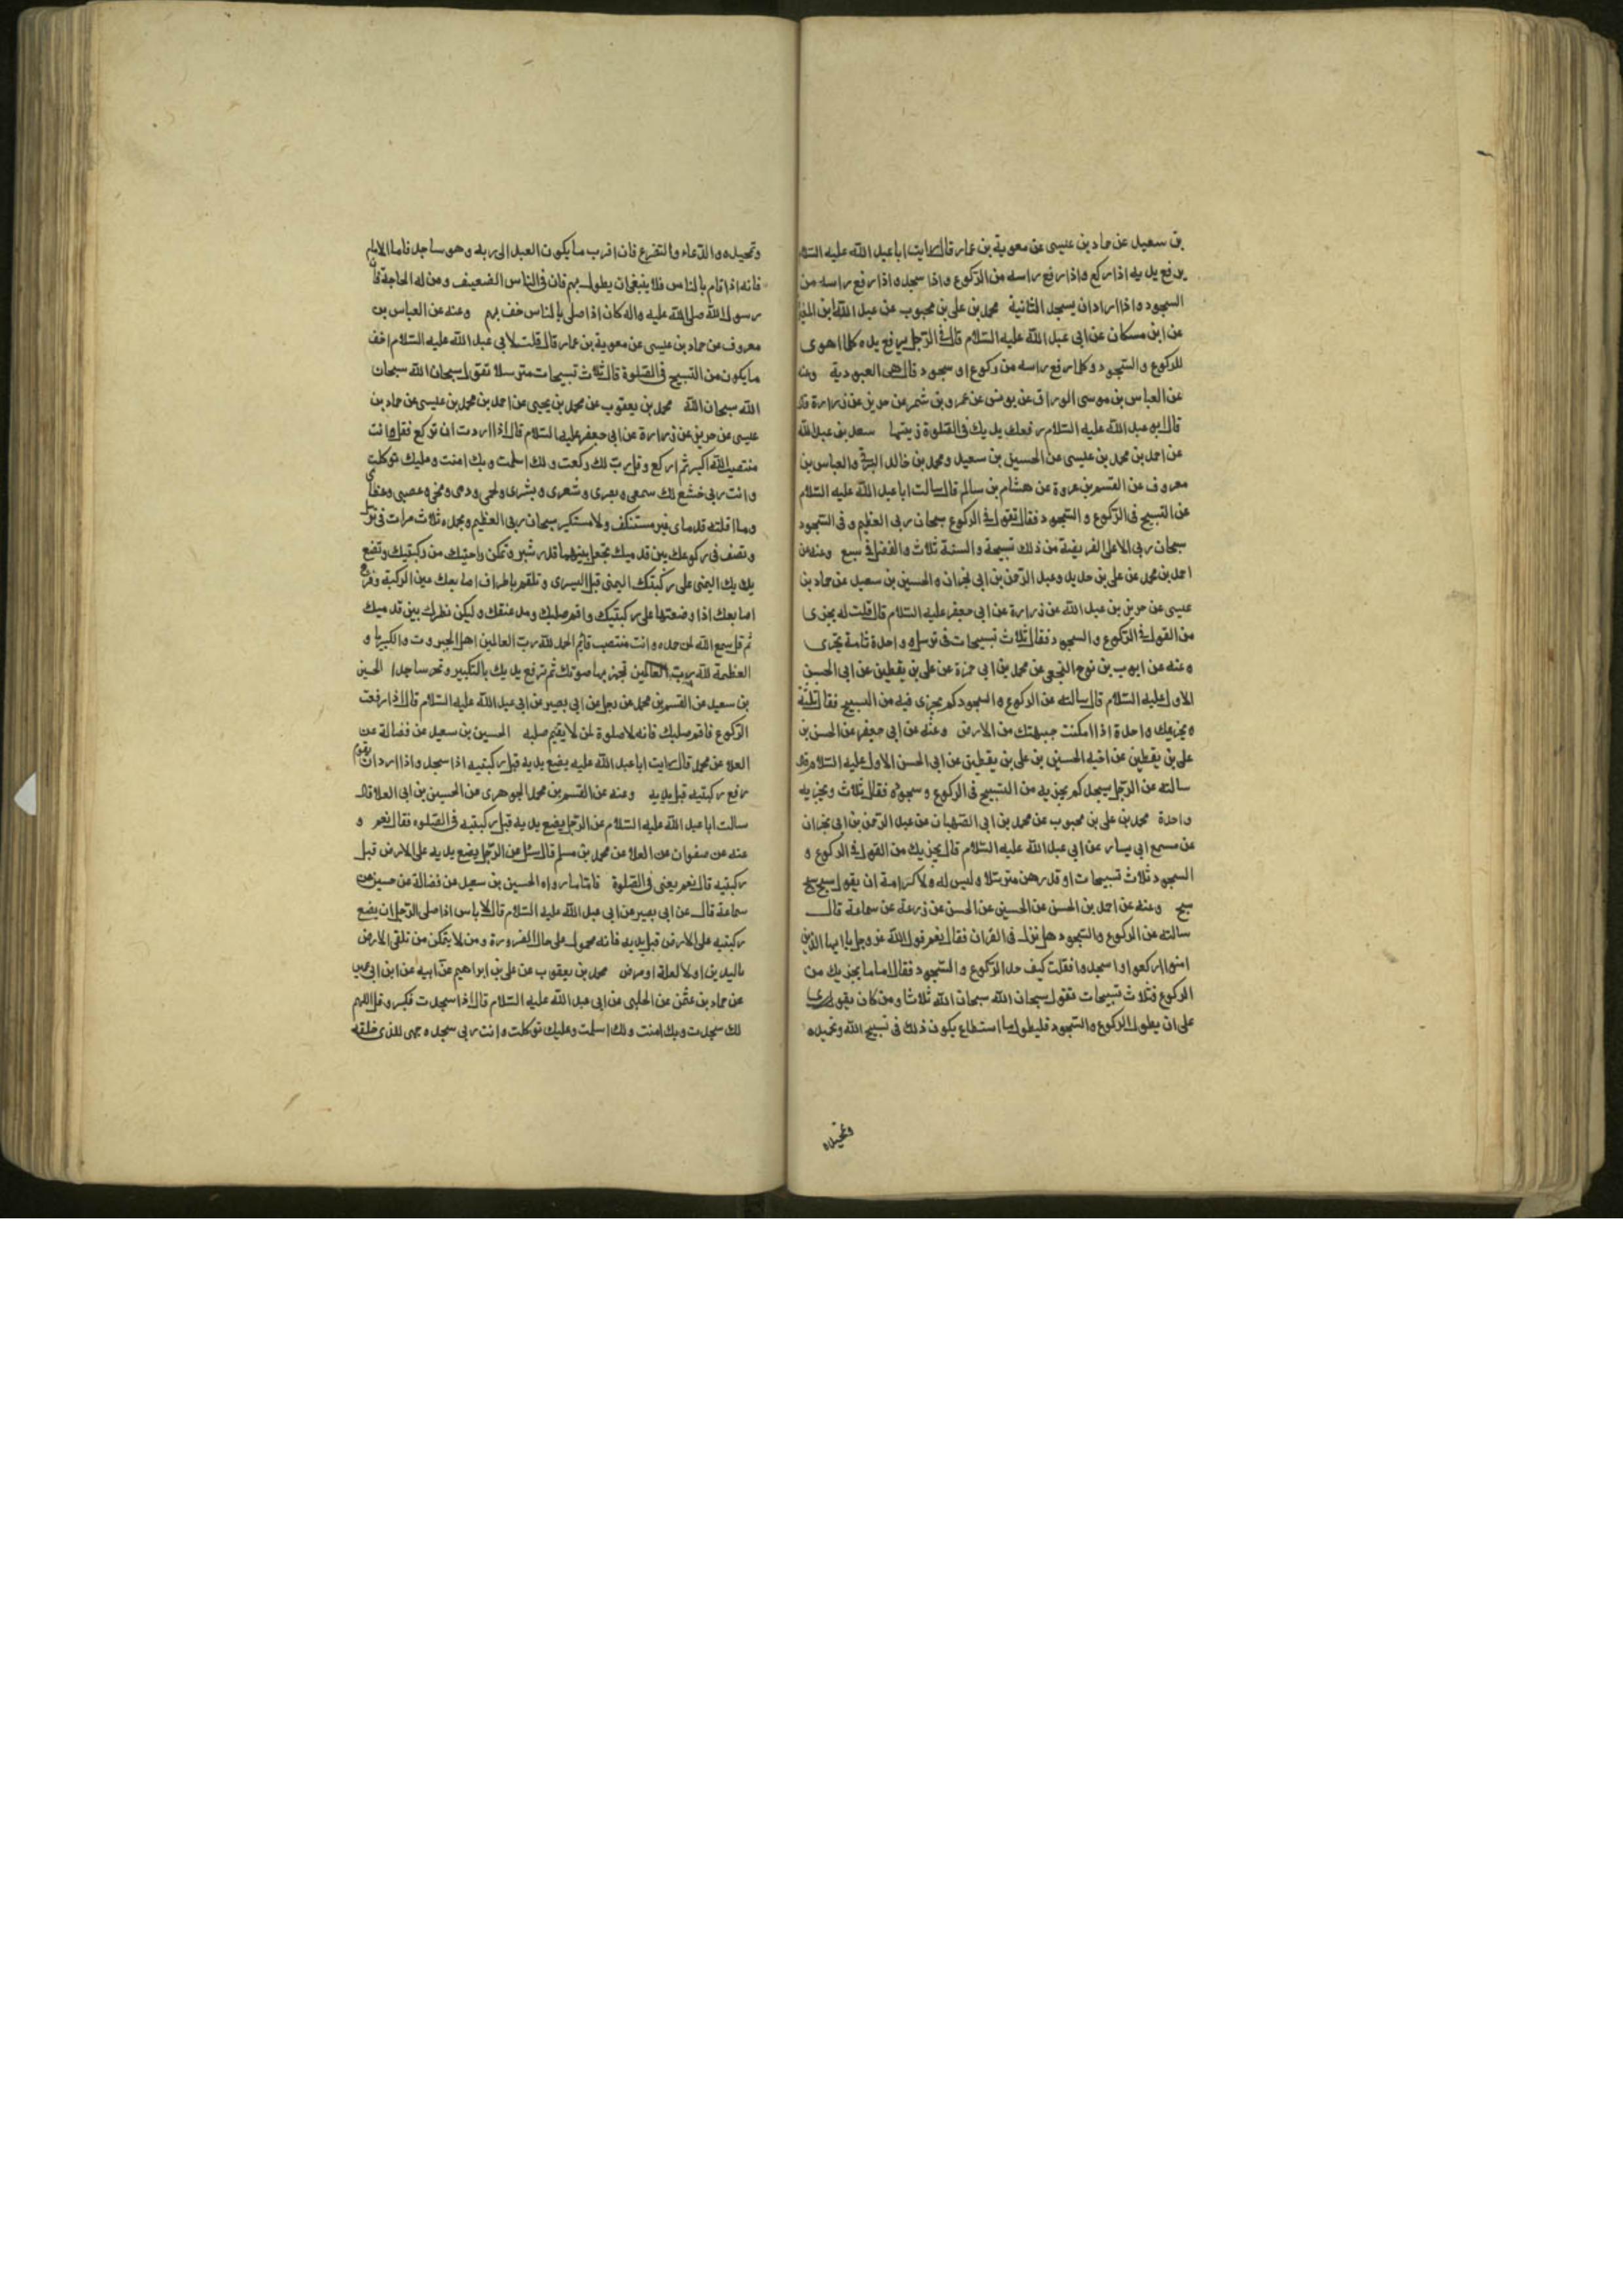 بن سعيد عن حماد بن عيسى عن معوية بن عمار قال رايت ابا عبد الله عليه السلام
يرفع يديه اذا ركع واذا رفع راسه من الركوع واذا سجد واذا رفع راسه من
السجود واذا اراد ان يسجد الثانية محمد بن على بن محبوب عن عبد الله بن المغيرة
عن ابن مسكان عن ابى عبد الله عليه السلام قال فى الرجل يرفع يده كلما اهوى
للركوع والسجود وكلما رفع راسه من ركوع او سجود قال هى العبودية وعنه
عن العباس بن موسى الوراق عن يونس عن عمرو بن شمر عن حريز عن زرارة قال
قال ابو عبد الله عليه السلام رفعك يديك فى الصلوة زينتها سعد بن عبد الله
عن احمد بن محمد بن عيسى عن الحسين بن سعيد ومحمد بن خالد البرقى والعباس بن
معروف عن القسم بن عروة عن هشام بن سالم قال سالت ابا عبد الله عليه السلام
عن التسبيح فى الركوع والسجود فقال تقول فى الركوع سبحان ربى العظيم وفى السجود
سبحان ربى الاعلى الفريضة من ذلك تسبيحة والسنة ثلاث والفضل فى سبع وعنه عن
احمد بن محمد عن على بن حديد وعبد الرحمن بن ابى نجران والحسين بن سعيد عن حماد بن
عيسى عن حريز بن عبد الله عن زرارة عن ابى جعفر عليه السلام قال قلت له يجزى
من القول فى الركوع والسجود فقال ثلاث تسبيحات فى ترسل وواحدة تامة تجزى
وعنه عن ايوب بن نوح النخعى عن محمد بن ابى حمزة عن على بن يقطين عن ابى الحسن
الاول عليه السلام قال سالته عن الركوع والسجود كم يجزى فيه من التسبيح فقال ثلثة
وتجزيك واحدة اذا امكنت جبهتك من الارض وعنه عن ابى جعفر عن الحسن بن
على بن يقطين عن اخيه الحسين بن على بن يقطين عن ابى الحسن الاول عليه السلام قال
سالته عن الرجل يسجد كم يجزيه من التسبيح فى الركوع وسجوده فقال ثلاث وتجزيه
واحدة محمد بن على بن محبوب عن محمد بن ابى الصهبان عن عبد الرحمن بن ابى نجران
عن مسمع ابى سيار عن ابى عبد الله عليه السلام قال يجزيك من القول فى الركوع و
السجود ثلاث تسبيحات او قدرهن مترسلا وليس له ولا كرامة ان يقول سبح سبح
سبح وعنه عن احمد بن الحسن عن الحسين عن الحسن عن زرعة عن سماعة قال
سالته عن الركوع والسجود هل نزل فى القران فقال نعم قول الله عز وجل يا ايها الذين
امنوا اركعوا واسجدوا فقلت كيف حد الركوع والسجود فقال اما ما يجزيك من
الركوع فثلاث تسبيحات تقول سبحان الله سبحان الله ثلاثا ومن كان يقوى
على ان يطول الركوع والسجود فليطول ما استطاع يكون ذلك فى تسبيح الله وتحميده
وتمجيده
وتمجيده والدعاء والتضرع فان اقرب ما يكون العبد الى ربه وهو ساجد فاما الامام
فانه اذا قام بالناس فلا ينبغى ان يطول بهم فان فى الناس الضعيف ومن له الحاجة فان
رسول الله صلى الله عليه واله كان اذا صلى بالناس خف بهم وعنه عن العباس بن
معروف عن حماد بن عيسى عن معوية بن عمار قال قلت لابى عبد الله عليه السلام اخف
ما يكون من التسبيح فى الصلوة قال ثلاث تسبيحات مترسلا تقول سبحان الله سبحان
الله سبحان الله محمد بن يعقوب عن محمد بن يحيى عن احمد بن محمد بن عيسى عن حماد بن
عيسى عن حريز عن زرارة عن ابى جعفر عليه السلام قال اذا اردت ان تركع فقل وانت
منتصب الله اكبر ثم اركع وقل رب لك ركعت ولك اسلمت وبك امنت وعليك توكلت
وانت ربى خشع لك سمعى وبصرى وشعرى وبشرى ولحمى ودمى ومخى وعصبى وعظامى
وما اقلته قدماى غير مستنكف ولا مستكبر سبحان ربى العظيم وبحمده ثلاث مرات فى ترسل
وتصف فى ركوعك بين قدميك تجعل بينهما قدر شبر وتمكن راحتيك من ركبتيك وتضع
يدك اليمنى على ركبتك اليمنى قبل اليسرى وتلقم باطراف اصابعك عين الركبة وفرج
اصابعك اذا وضعتها على ركبتيك واقم صلبك ومد عنقك وليكن نظرك بين قدميك
ثم قل سمع الله لمن حمده وانت منتصب قائم الحمد لله رب العالمين اهل الجبروت والكبريا و
العظمة لله رب العالمين تجهر بها صوتك ثم ترفع يديك بالتكبير وتخر ساجدا الحسين
بن سعيد عن القسم بن محمد عن رجل عن ابى بصير عن ابى عبد الله عليه السلام قال اذا رفعت
الركوع فاقم صلبك فانه لا صلوة لمن لا يقيم صلبه الحسين بن سعيد عن فضالة عن
العلا عن محمد قال رايت ابا عبد الله عليه يضع يديه قبل ركبتيه اذا سجد واذا اراد ان يقوم
رفع ركبتيه قبل يديه وعنه عن القسم بن محمد الجوهرى عن الحسين بن ابى العلا قال
سالت ابا عبد الله عليه السلام عن الرجل يضع يديه قبل ركبتيه فى الصلوه فقال نعم و
عنه عن صفوان عن العلا عن محمد بن مسلم قال سئل عن الرجل يضع يديه على الارض قبل
ركبتيه قال نعم يعنى فى الصلوة فاما ما رواه الحسين بن سعيد عن فضالة عن حسين عن
سماعة قال عن ابى بصير عن ابى عبد الله عليه السلام قال لا باس اذا صلى الرجل ان يضع
ركبتيه على الارض قبل يديه فانه محمول على حال الضرورة ومن لا يتمكن من تلقى الارض
باليدين اولا لعلة او مرض محمد بن يعقوب عن على بن ابراهيم عن ابيه عن ابن ابى عمير
عن حماد بن عثمن عن الحلبى عن ابى عبد الله عليه السلام قال اذا سجدت فكبر وقل اللهم
لك سجدت وبك امنت ولك اسلمت وعليك توكلت وانت ربى سجد وجهى للذى خلقه